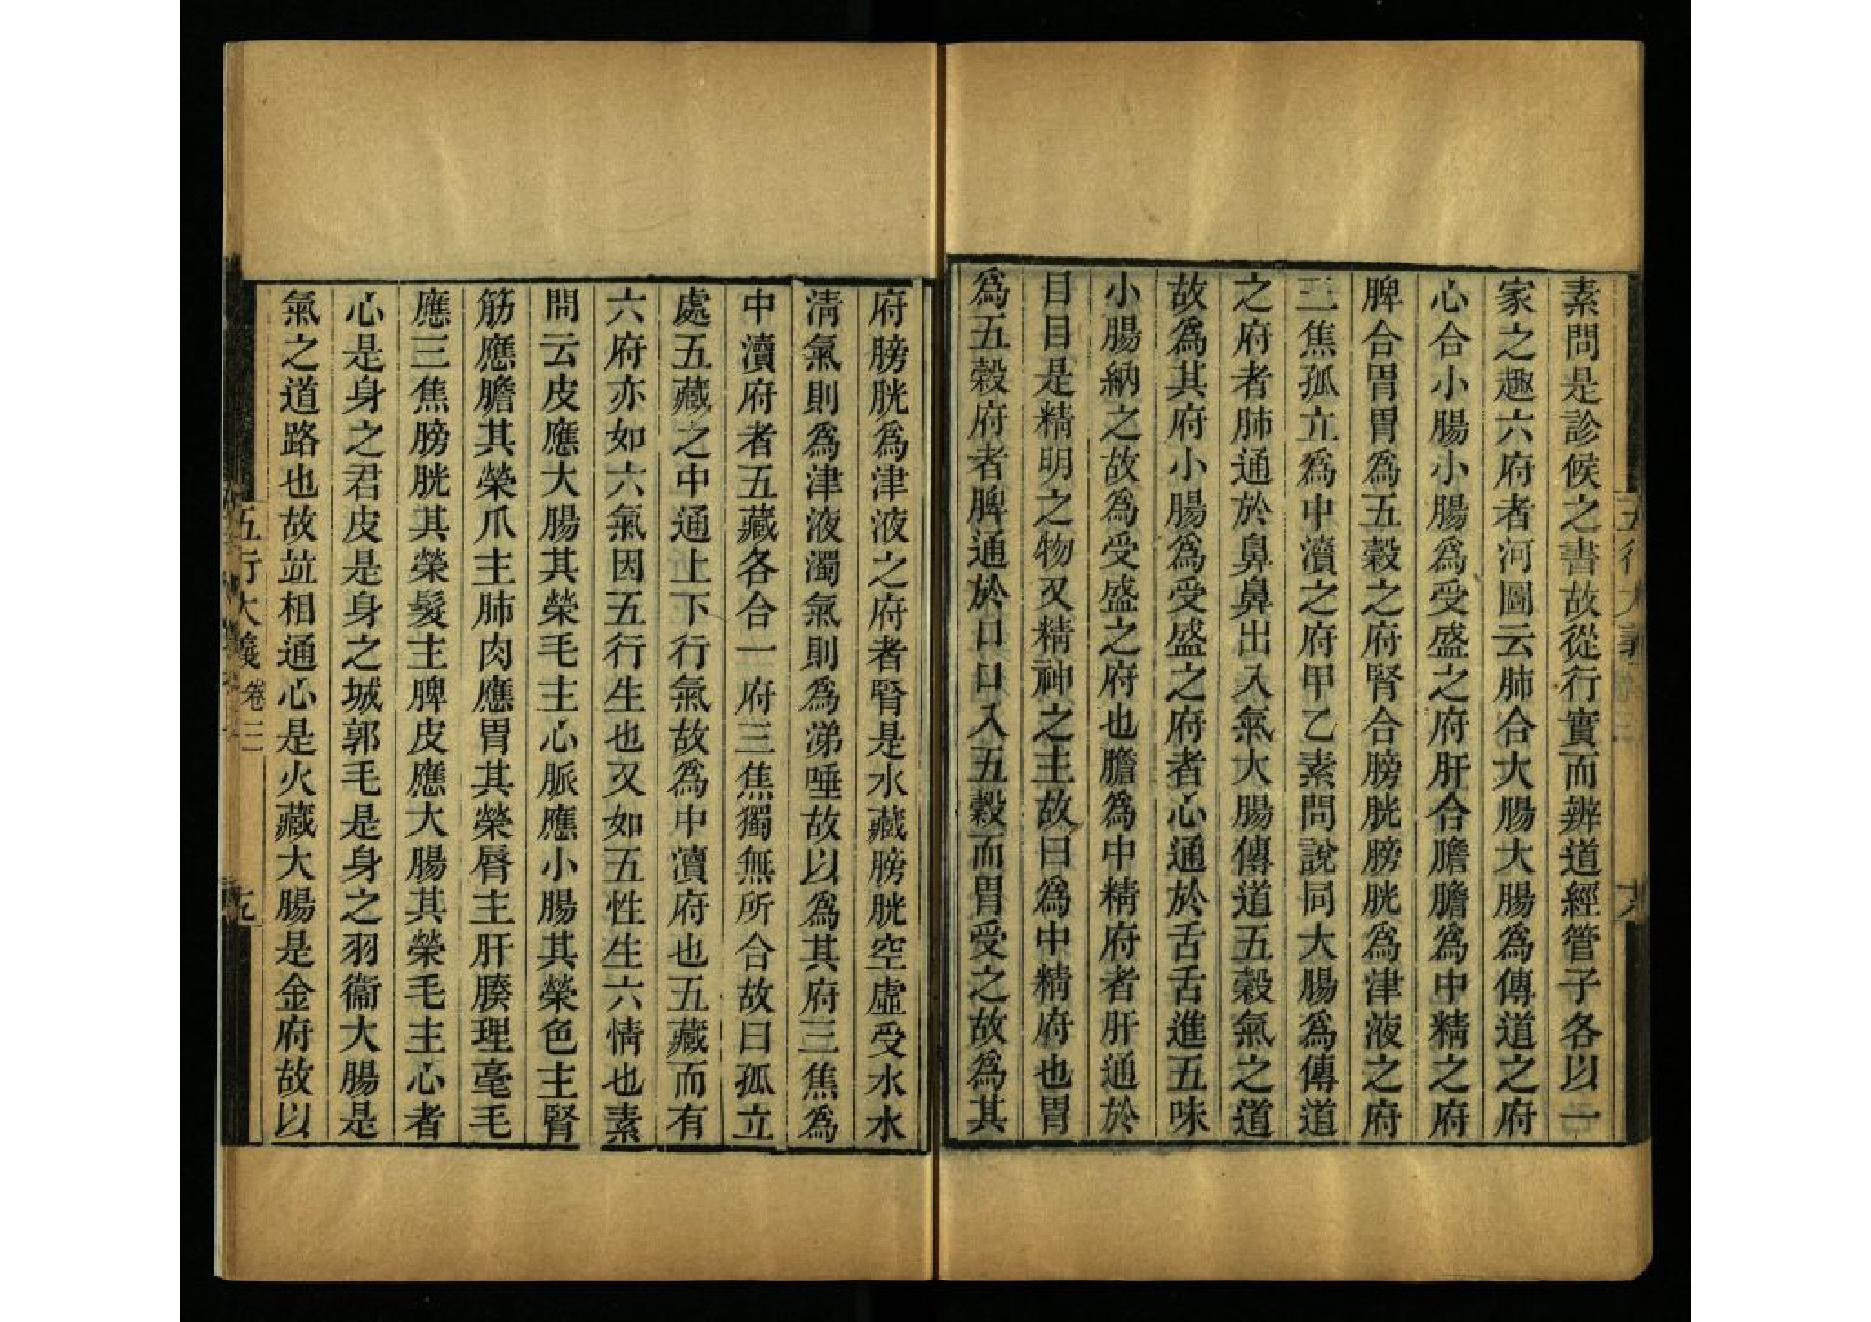 素問是診候之書故從行實而辨道經管子各以一
家之趣六府者河圖云肺合大腸大腸為傳道之府
心合小腸小腸為受盛之府肝合膽膽為中精之府
脾合胃胃為五穀之府腎合膀胱膀胱為津液之府
三焦孤立為中瀆之府甲乙素問說同大腸為傳道
之府者肺通於鼻鼻出入氣大腸傳道五穀氣之道
故為其府小腸為受盛之府者心通於舌舌進五味
小腸納之故為受盛之府也膽為中精府者肝通於
目目是精明之物又精神之主故曰為中精府也胃
為五穀府者脾通於口口入五穀而胃受之故為其
府膀胱為津液之府者腎是水藏膀胱空虛受水水
清氣則為津液濁氣則為涕唾故以為其府三焦為
中瀆府者五藏各合一府三焦獨無所合故曰孤立
處五藏之中通上下行氣故為中瀆府也五藏而有
六府亦如六氣因五行生也又如五性生六情也素
問云皮應大腸其榮毛主心脈應小腸其榮色主腎
筋應膽其榮爪主肺肉應胃其榮脣主肝腠理毫毛
應三焦膀胱其榮髮主脾皮應大腸其榮毛主心者
心是身之君皮是身之城郭毛是身之羽衞大腸是
氣之道路也故竝相通心是火藏大腸是金府故以
五行大義 卷三 九